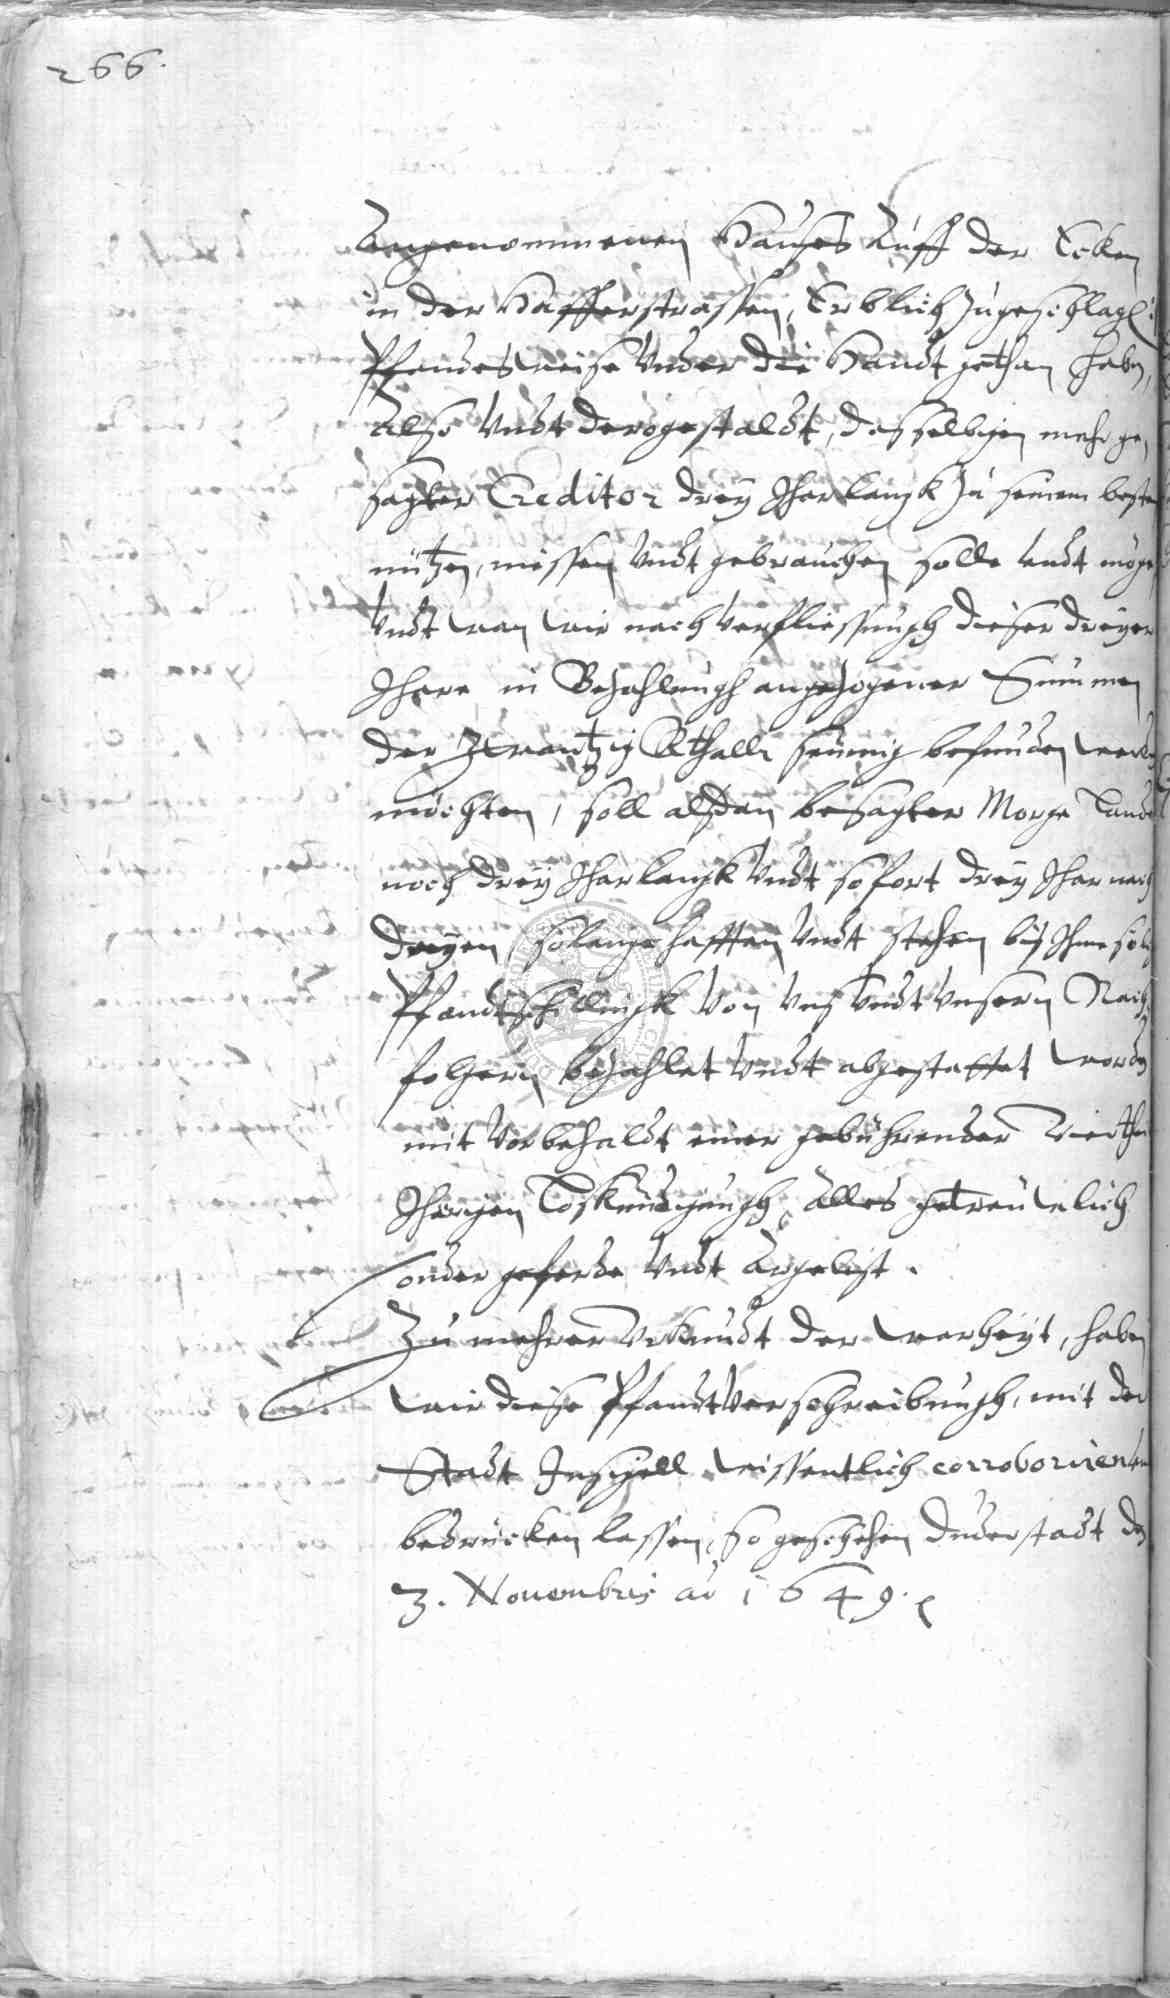 266.
Angenommenen Hauses Auff der Ecken
in der Hafferstrassen, Erblich zugeschlag
Pfandesweise Under die Handt gethan haben,
Also Undt derogestaldt, desselbigen mehr ge,
sagter Creditor drey Jhar langk zu seinem beste
nützen, niessen Undt gebrauchen solle Undt möge
Undt wan wir nach Verfliessungh dieser dreyer
Jhare in Bezahlungh angezogener Summen
der Zwantzig Rthallr seumig befunden werd
möchten, soll alßdan besagter Morge Landt
noch drey Jhar langk Undt so fort drey Jhar nach
dreyen, solange hafften Undt stehen biß Jhme solch
Pfandtschillingk Von Uns Undt Unsern Nach,
folgern bezahlet Undt abgestattet worden
mit Vorbehaldt einer gebührender Vierthel
Jherigen Loßkündigungh, Alles getreüwlich
sonder geferde Undt Argelist.
Zu mehrer Urkundt der warheyt, haben
wir diese Pfandtverschreibungh, mit der
Stadt Insigell wissentlich corroborirenten
bedrucken lassen, so geschehen Duderstadt den
3. Novembris ao 1649.